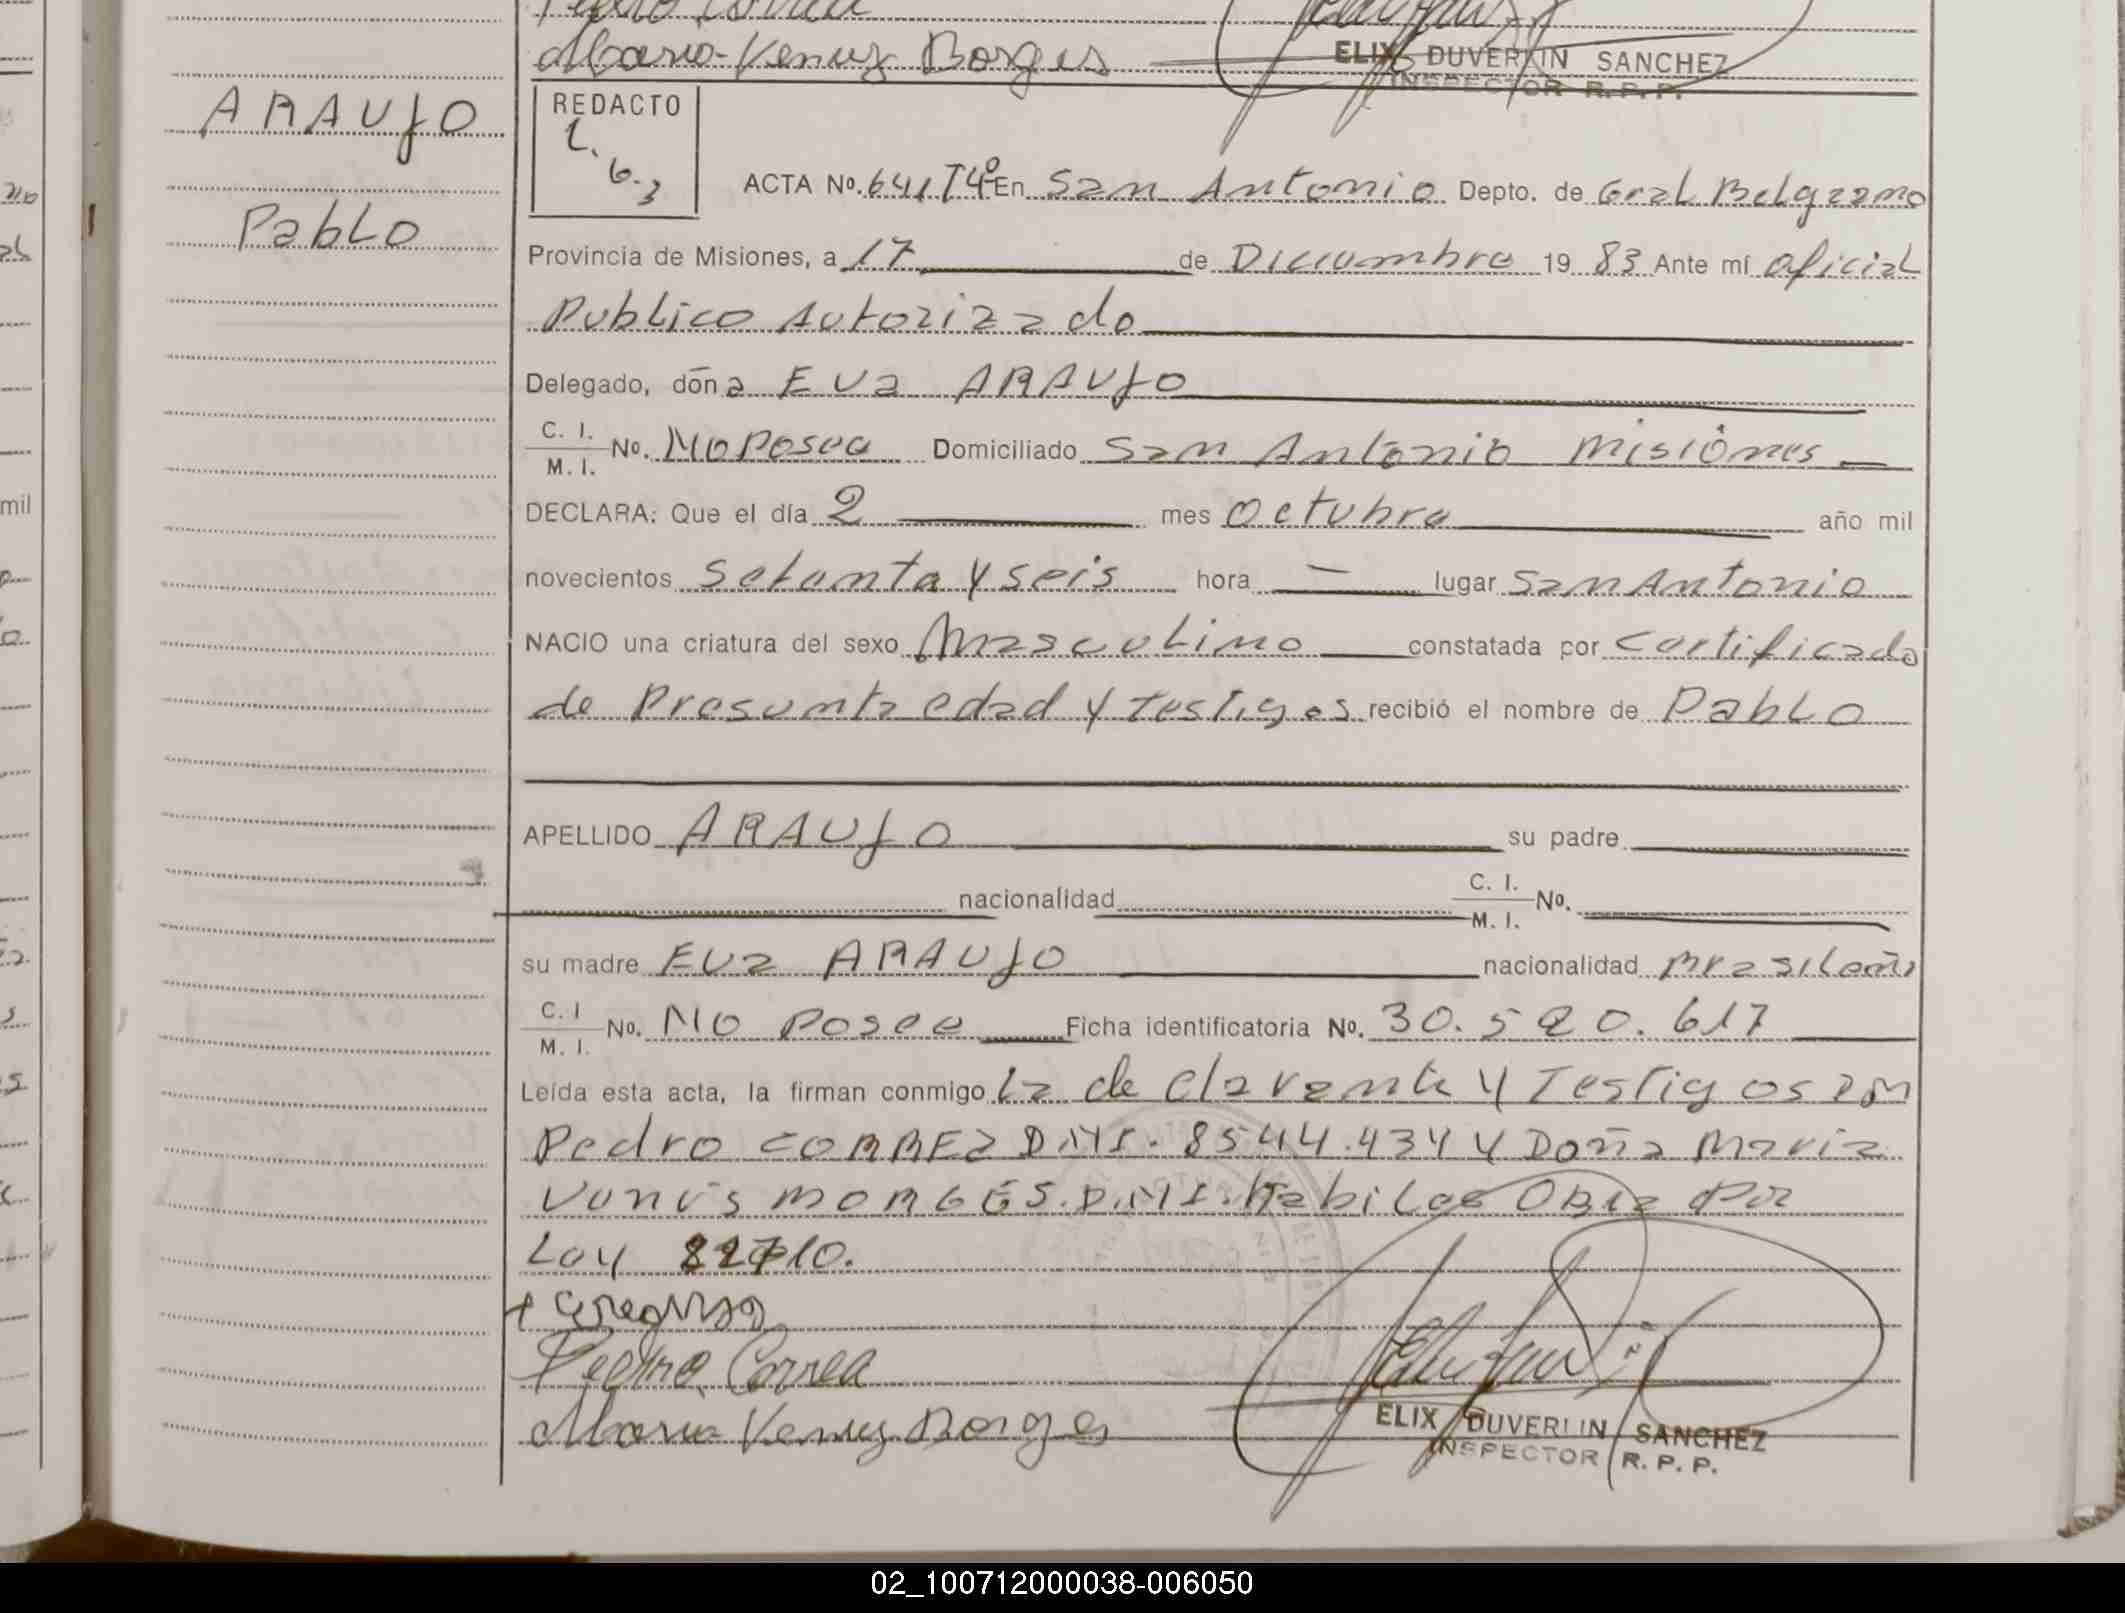 Pedro Correa
Maria Venuz Borges
ELIX DUVERLIN SANCHEZ
INSPECTOR R. P. P.
ARAUJO
Pablo
REDACTO
L.
6.3
ACTA Nº. 641 Tº4 En San Antonio Depto. de Gral Belgrano
Provincia de Misiones, a 17 de Diciembre 19 83 Ante mí oficial
Publico Autorizado
Delegado, don a Eva ARAUJO
C. I.
M. I. Nº. No Posee Domiciliado San Antonio Misiones
DECLARA: Que el día 2 mes octubre año mil
novecientos setenta y seis hora — lugar San Antonio
NACIO una criatura del sexo Masculino constatada por certificado
de Presunta edad y testigos recibió el nombre de Pablo
APELLIDO ARAUJO su padre
nacionalidad C. I.
M. I. Nº.
su madre Eva ARAUJO nacionalidad Brasileña
C. I
M. I. Nº. No Posee Ficha identificatoria Nº. 30.520.617
Leída esta acta, la firman conmigo La declarante y Testigos
Pedro CORREA D.N.I. 8544.434 y Doña Maria
Venus BORGES. D.N.I. Habil se Obra por
Ley 22710.
Pedro Correa
Maria Venuz Borges
ELIX DUVERLIN SANCHEZ
INSPECTOR R. P. P.
mil
02_100712000038-006050